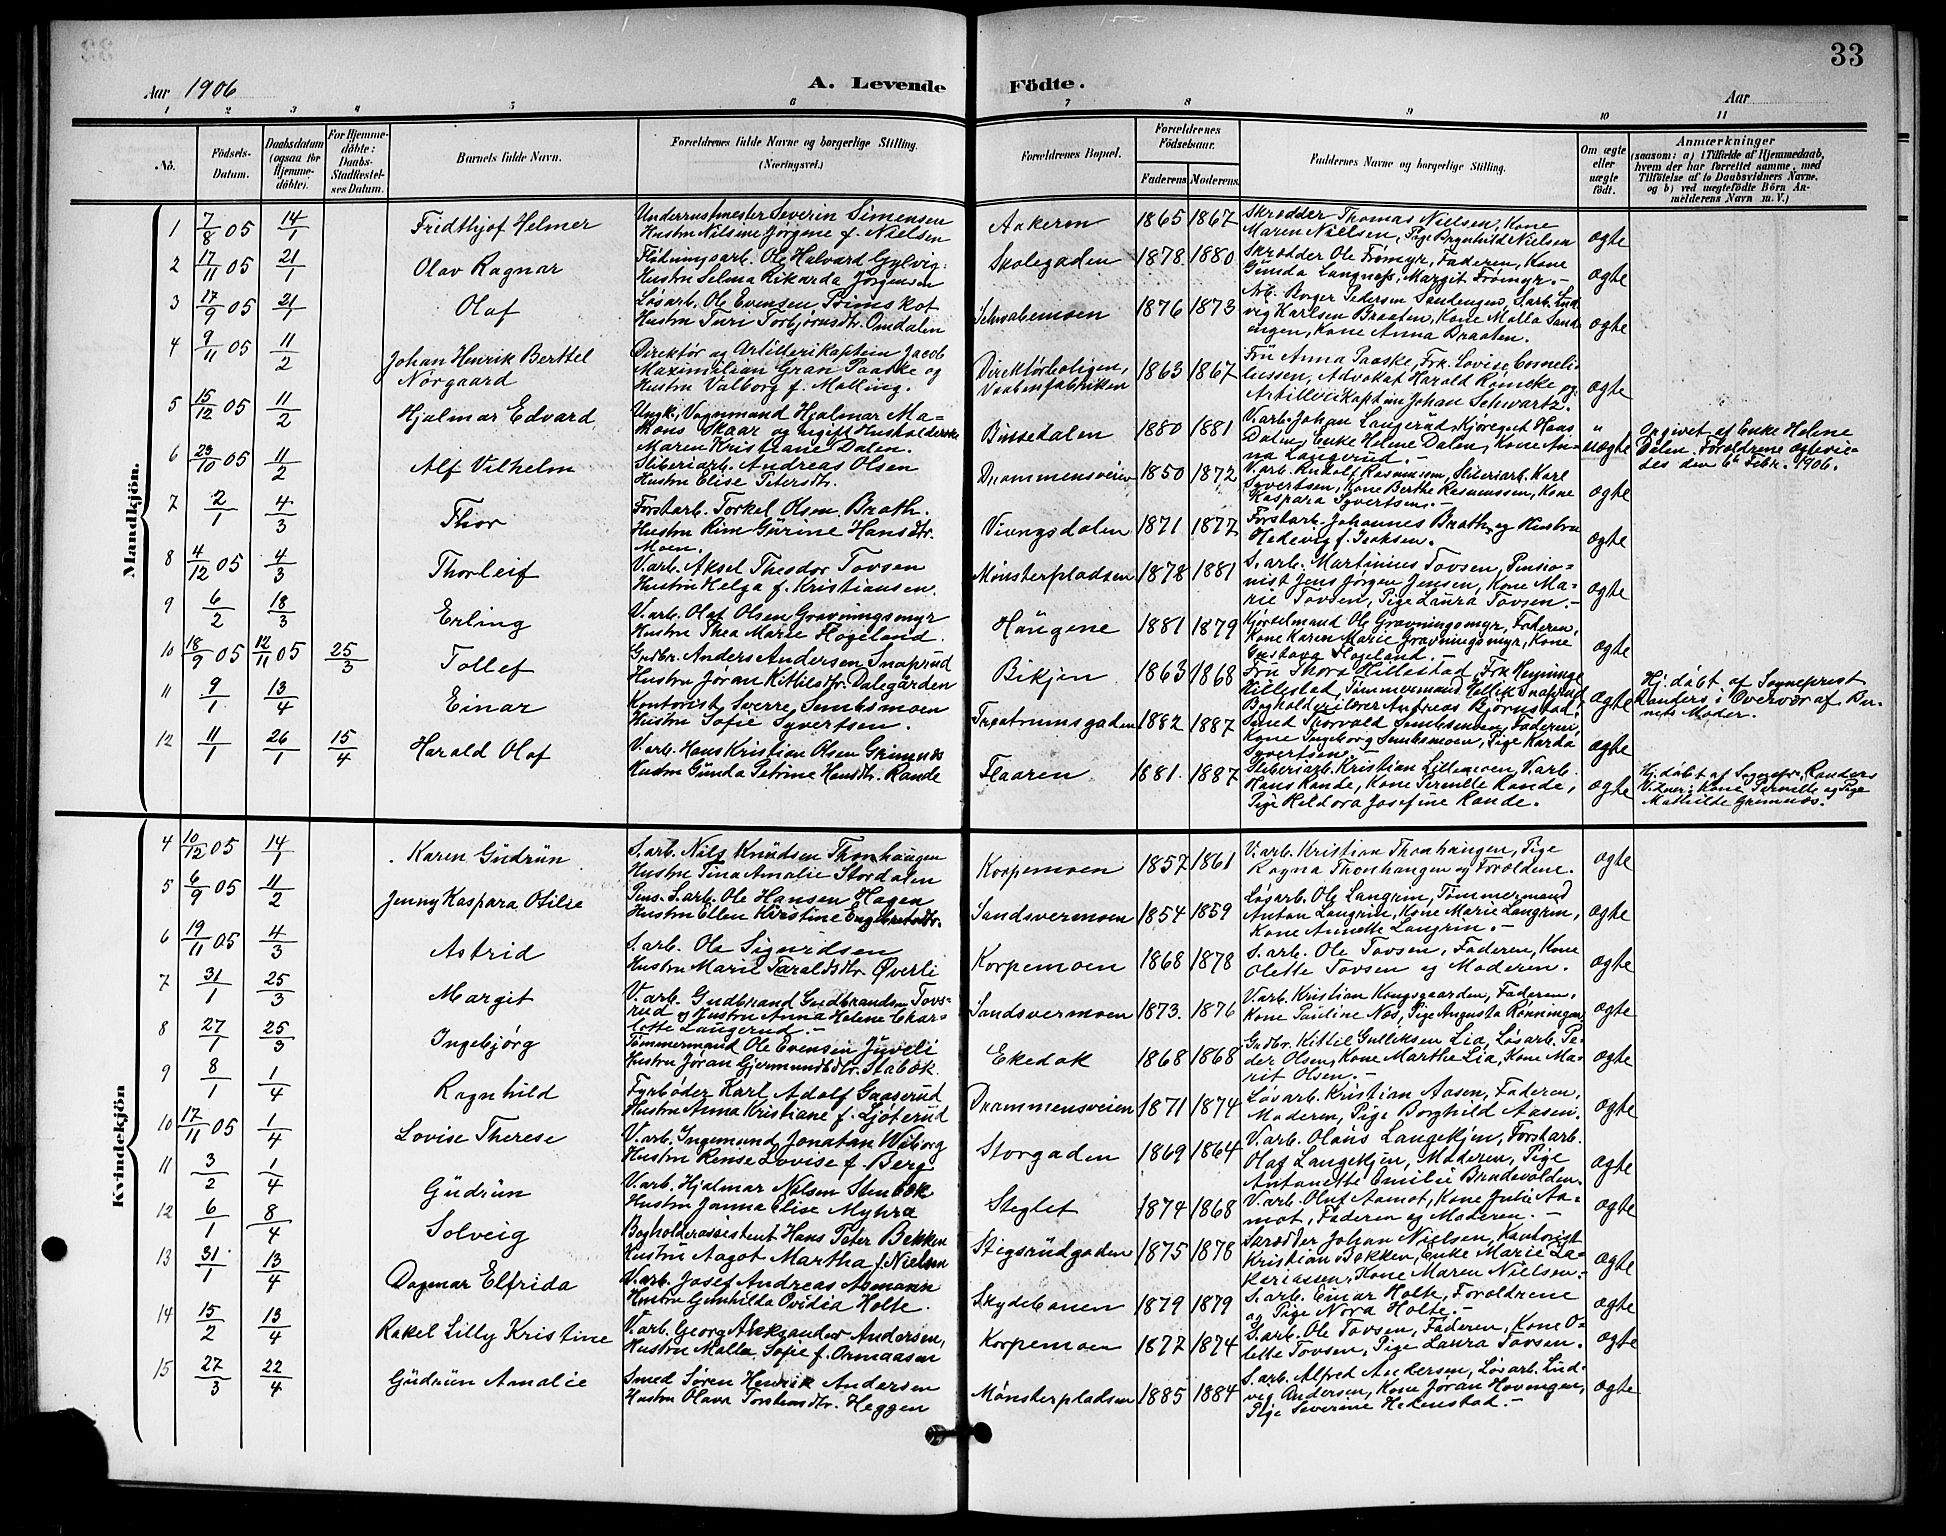 33
Aar 1906
A. Levende Födte.
Aar
1 2 3 4 5 6 7 8 9 10 11
No.
Födsels-Datum.
Daabsdatum (ogsaa for Hjemme-döbte).
For Hjemme-döbte: Daabs-Stadfæstel-ses Datum.
Barnets fulde Navn.
Forældrenes fulde Navne og borgerlige Stilling. (Næringsvei.)
Forældrenes Bopæl.
Forældrenes Födselsaar.
Faderens. Moderens.
Faddernes Navne og borgerlige Stilling.
Om ægte eller uægte født.
Anmærkninger
(saasom: a) i Tilfælde af Hjemmedaab, hvem der har forrettet samme, med Tilföielse af to Daabsvidners Navne, og b) ved uægtefödte Börn An-melderens Navn m. V.)
Mandkjön.
1 7/8 05 14/1 Fridthjof Helmer Underrustmester Severin Simensen
Hustru Nilsine Jørgine f. Nielsen Aakeren 1865 1867 Skrædder Thomas Nielsen, Kone
Maren Nielsen, Pige Brynhild Nielsen ægte
2 17/11 05 21/1 Olav Ragnar Flødningsarb. Ole Halvard Gylvig.
Hustru Selma Rikarda Jørgensen Skolegaden 1878 1880 Skrædder Ole Frømyr, Faderen, Kone
Gunda Langnæss, Margit Frømyr. ægte
3 17/9 05 21/1 Olaf Løsarb. Ole Evensen
Hustru Turi Torbjørnsdtr. Omdalen Schwabemoen 1876 1873 Arb. Borger Pedersen Sandengen, S.arb. Lud-
vig Karlsen Braaten, Kone Malla Sand-
engen, Kone Anna Braaten. ægte
4 9/11 05 11/2 Johan Henrik Berttel
Nørgaard Direktør og Artillerikaptein Jacob
Maximilian Gran Paaske og
Hustru Valborg f. Malling. Direktørboligen,
Vaabenfabrikken 1863 1867 Frü Anna Paaske, Frk. Lovise Corneli-
ussen, Advokat Harald Römcke og
Artillerikaptein Johan Schwartz. ægte
5 15/12 05 11/2 Hjalmar Edvard Ungk. Vognmand Hjalmar Ma-
thons Skaar og ugift Husholderske
Maren Kristiane Dalen. Binsedalen 1880 1881 V.arb. Johan Langerud, Kjøregut Hans
Dalen, Enke Helene Dalen, Kone An-
na Langerud. uægte Opgivet af Enke Helene
Dalen. Forældrene ægtevie-
des den 6te Febr. 1906.
6 23/10 05 11/2 Alf Vilhelm Sliberiarb. Andreas Olsen
Hustru Elise Petersdtr. Drammensveien 1850 1872 V.arb. Rudolf Rasmussen, Sliberiarb. Karl
Syvertsen, Kone Berthe Rasmussen, Kone
Kaspara Syvertsen. ægte
7 2/1 4/3 Thor Forstarb. Torkel Olsen Brath.
Hustru Rim Gürine Hansdtr.
Moen. Viungsdalen 1871 1877 Forstarb. Johannes Brath og Hustru
Hedevig f. Isaksen. ægte
8 4/12 05 4/3 Thorleif V.arb. Aksel Theodor Tovsen
Hustru Helga f. Kristiansen. Mønsterpladsen 1878 1881 S.arb. Martinius Tovsen, Pensio-
nist Jens Jørgen Jensen, Kone Ma-
rie Tovsen, Pige Laura Tovsen. ægte
9 6/2 18/3 Erling V.arb. Olaf Olsen Gravningsmyr
Hustru Thea Marie Flogeland. Haugene 1881 1879 Kjørelmand Ole Gravningsmyr, Faderen,
Kone Karen Marie Gravningsmyr, Kone
Gustava Flogeland. ægte
10 18/9 05 12/11 05 25/3 Tollef Gudbr. Anders Andersen Snaprud
Hustru Jøran Kittilsdtr. Dalegården Bikjen 1863 1868 Frü Thora Hillestad, Frk. Henninge
Hillestad, Tømmermand Hellik Snaprud ægte Hj. døbt af Sogneprest
Randers i Overvær af Bar-
nets Moder.
11 9/1 13/4 Einar Kontorist Sverre Sembsmoen
Hustru Sofie Syvertsen. Teatrumsgaden 1882 1887 Bogholderi Andreas Bjørnstad,
Smed Thorvald Sembsmoen, Faderen,
Kone Ingeborg Sembsmoen, Pige Karda
Syvertsen. ægte
12 11/1 26/1 15/4 Harald Olaf V.arb. Hans Kristian Olsen Grimnæs
Hustru Gunda Petrine Hansdtr. Rande Flaaren 1881 1887 Sliberiarb. Kristian Lillemoen, V.arb.
Hans Rande, Kone Pernille Rande,
Pige Heldora Josefine Rande. ægte Hj. døbt af Sognepr. Randers
Vidner: Kone Pernille og Pige
Mathilde Grimnæs.
Kvindekjön
4 10/12 05 14/1 Karen Gudrün S.arb. Nils Knudsen Thonhaugen
Hustru Tina Amalie Stordalen Korpemoen 1857 1861 V.arb. Kristian Thonhaugen, Pige
Ragna Thonhaugen og Forældrene. ægte
5 6/9 05 11/2 Jenny Kaspara Otilie Pens. S.arb. Ole Hansen Hagen
Hustru Ellen Kristine Engebretsdtr. Sandsværmoen 1854 1859 Løsarb. Ole Langrin, Tømmermand
Anton Langrin, Kone Marie Langrin,
Kone Annette Langrin. ægte
6 19/11 05 4/3 Astrid S.arb. Ole Sigurdsen
Hustru Marie Taraldsdtr. Øverli Korpemoen 1868 1878 S.arb. Ole Tovsen, Faderen, Kone
Olette Tovsen og Moderen. ægte
7 31/1 25/3 Margit V.arb. Gudbrand Gudbrandsen Tovs-
rud og Hustru Anna Helene Char-
lotte Langerud. Sandsværmoen 1873 1876 V.arb. Kristian Kongsgaarden, Faderen,
Kone Pauline Næs, Pige Augusta Rønningen ægte
8 27/1 25/3 Ingebjørg Tømmermand Ole Evensen Juveli
Hustru Jøran Gjermundsdtr. Stabæk. Ekedok 1868 1868 Gudbr. Kittil Gulliksen Lia, Løsarb. Pe-
der Olsen, Kone Marthe Lia, Kone Ma-
rit Olsen. ægte
9 8/1 1/4 Ragnhild Fyrbøder Karl Adolf Gaaserud
Hustru Anna Kristiane f. Ljøterud Drammensveien 1871 1874 Løsarb. Kristian Aasen, Faderen,
Moderen, Pige Borghild Aasen. ægte
10 17/11 05 1/4 Lovise Therese V.arb. Ingemund Jonatan Wiborg
Hustru Rense Lovise f. Berg Storgaden 1869 1864 V.arb. Olaus Langekjen, Forstarb.
Olaf Langekjen, Moderen, Pige
Antonette Emilie Brudevolden. ægte
11 3/2 1/4 Güdrün V.arb. Hjalmar Nilsen Stenbæk
Hustru Janna Elise Myhra Steglet 1874 1868 V.arb. Oluf Aamot, Kone Julie Aa-
mot, Faderen og Moderen. ægte
12 6/1 8/4 Solveig Bogholderassistent Hans Peter Bekken
Hustru Aagot Martha f. Nielsen Stigsrudgaden 1875 1878 Skrædder Johan Nielsen, Kontorist
Kristian Bakken, Enke Marie Za-
kariassen, Kone Maren Nielsen. ægte
13 31/1 13/4 Dagmar Elfrida V.arb. Josef Andreas Asmann
Hustru Gunhilda Ovidia Holte. Skydebanen 1879 1879 S.arb. Einar Holte, Forældrene
og Pige Nora Holte. ægte
14 15/2 13/4 Rakel Lilly Kristine V.arb. Georg Aleksander Andersen,
Hustru Malla Sofie f. Ormaasen Korpemoen 1877 1874 S.arb. Ole Tovsen, Faderen, Kone O-
lette Tovsen, Pige Laura Tovsen. ægte
15 27/3 22/4 Güdrün Amalie Smed Søren Henrik Andersen
Hustru Olava Torstensdtr. Heggen Mønsterpladsen 1885 1884 S.arb. Alfred Andersen, Løsarb. Lud-
vig Andersen, Kone Jøran Hovengen,
Pige Severine Hedenstad. ægte